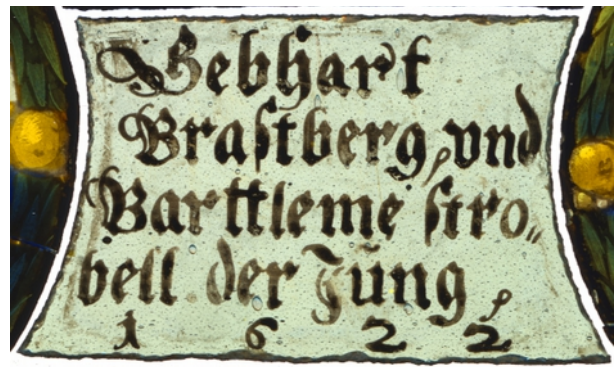 Gebhart
Braſtberg, vnd
Barttleme ſtro„
bell der Jüng,
1 6 2 2